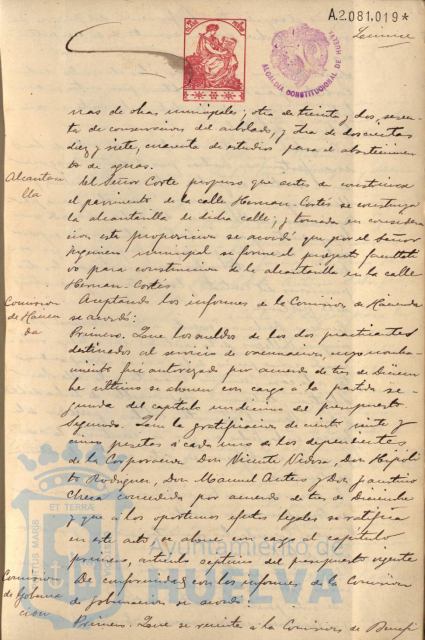 A.2.081.019*
ALCALDIA CONSTITUCIONAL DE HUELVA
rias de obras municipales; otra de treinta y dos, seten-
ta de conservacion del arbolado, y otra de doscientas
diez y siete, cuarenta de estudios para el abastecimien-
to de aguas.
Alcantari-
lla
El Señor Corte propuso que antes de construirse
el pavimento de la calle Hernan-Cortés se construya
la alcantarilla de dicha calle; y tomada en considera-
cion esta proposicion se acordó que por el Señor
Yngeniero municipal se forme el presupto facultati-
vo para construccion de la alcantarilla en la calle
Hernan-Cortés
Comision
de Hacien-
da
Aceptando los informes de la Comision de Hacienda
se acordó:
Primero. Que los sueldos de los dos practicantes
destinados al servicio de vacunacion, cuyo nombra-
miento fue autorizado por acuerdo de tres de Diciem-
bre último se abonen con cargo a la partida se-
gunda del capitulo undecimo del presupuesto
Segundo. Que la gratificacion de ciento veinte y
cinco pesetas á cada uno de los dependientes
de la Corporacion Don Vicente Don Hipóli-
to Rodriguez, Don Manuel y Don Faustino
Checa concedida por acuerdo de tres de Diciembre
y que á los oportunos efectos legales se ratifica
en este acto se abone con cargo al capitulo
primero, articulo septimo del presupuesto vigente
Comision
de Goberna
cion
De conformidad con los informes de la Comision
de Gobernacion se acordó:
Primero. Que se remita a la Comision de Benefi
ET TERRÆ
PORTUS MARIS
Ayuntamiento de
HUELVA